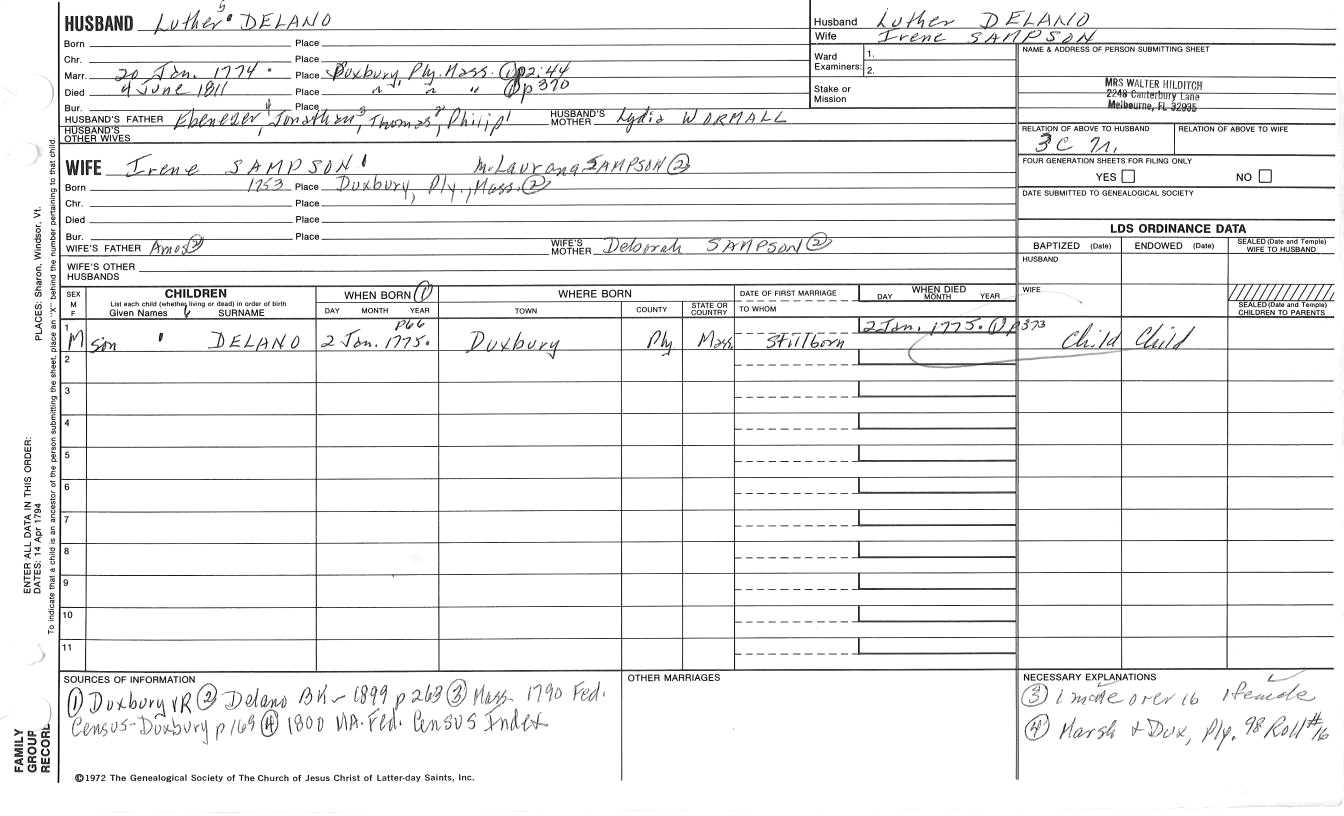 5
HUSBAND Luther DELANO
Born Place
Chr. Place
Marr. 20 Jan. 1774. Place Duxbury, Ply. Mass. ① p2:44
Died 4 June 1811 Place " " " ① p370
Bur. Place
HUSBAND'S FATHER Ebenezer 4, Jonathan 3, Thomas 2, Philip 1 HUSBAND'S MOTHER Lydia WORMALL
HUSBAND'S OTHER WIVES
Husband Luther DELANO
Wife Irene SAMPSON
Ward Examiners: 1.
2.
Stake or Mission
NAME & ADDRESS OF PERSON SUBMITTING SHEET
MRS WALTER HILDITCH
2248 Canterbury Lane
Melbourne, FL 32935
RELATION OF ABOVE TO HUSBAND RELATION OF ABOVE TO WIFE
3C
FOUR GENERATION SHEETS FOR FILING ONLY
YES NO
DATE SUBMITTED TO GENEALOGICAL SOCIETY
WIFE Irene SAMPSON SAMPSON ②
Born 1753 Place Duxbury, Ply., Mass. ②
Chr. Place
Died Place
Bur. Place
WIFE'S FATHER Amos ② WIFE'S MOTHER Deborah SAMPSON ②
WIFE'S OTHER HUSBANDS
LDS ORDINANCE DATA
BAPTIZED (Date) ENDOWED (Date) SEALED (Date and Temple) WIFE TO HUSBAND
HUSBAND
WIFE
SEALED (Date and Temple) CHILDREN TO PARENTS
SEX M F CHILDREN List each child (whether living or dead) in order of birth Given Names SURNAME
WHEN BORN ① DAY MONTH YEAR
WHERE BORN TOWN COUNTY STATE OR COUNTRY
DATE OF FIRST MARRIAGE TO WHOM
WHEN DIED DAY MONTH YEAR
p66
1 M son DELANO 2 Jan. 1775. Duxbury Ply Mass. Stillborn 2 Jan. 1775. ① p373 Child Child
2
3
4
5
6
7
8
9
10
11
SOURCES OF INFORMATION
① Duxbury VR ② Delano BK - 1899 p263 ③ Mass. 1790 Fed.
Census-Duxbury p169 ④ 1800 MA. Fed. Census Index
OTHER MARRIAGES
NECESSARY EXPLANATIONS
③ 1 male over 16 1 female
④ Marsh & Dux, Ply. 98 Roll #16
©1972 The Genealogical Society of The Church of Jesus Christ of Latter-day Saints, Inc.
FAMILY GROUP RECORD
ENTER ALL DATA IN THIS ORDER:
DATES: 14 Apr 1794
PLACES: Sharon, Windsor, Vt.
To indicate that a child is an ancestor of the person submitting the sheet, place an "X" behind the number pertaining to that child.